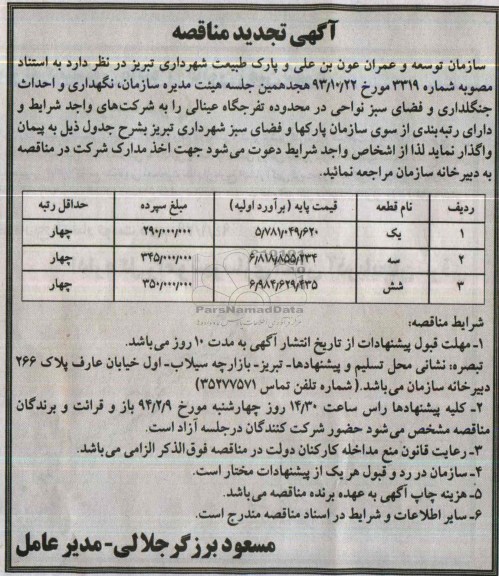 آگهی تجدید مناقصه
سازمان توسعه و عمران عون بن علی و پارک طبیعت شهرداری تبریز در نظر دارد به استناد
مصوبه شماره ۳۳۱۹ مورخ ۹۳/۱۰/۲۲ هجدهمین جلسه هیئت مدیره سازمان، نگهداری و احداث
جنگلداری و فضای سبز نواحی در محدوده تفرجگاه عینالی را به شرکت‌های واجد شرایط و
دارای رتبه‌بندی از سوی سازمان پارکها و فضای سبز شهرداری تبریز بشرح جدول ذیل به پیمان
واگذار نماید لذا از اشخاص واجد شرایط دعوت می‌شود جهت اخذ مدارک شرکت در مناقصه
به دبیرخانه سازمان مراجعه نمائید.
ردیف نام قطعه قیمت پایه (برآورد اولیه) مبلغ سپرده حداقل رتبه
۱ یک ۵/۷۸۱/۰۴۹/۶۲۰ ۲۹۰/۰۰۰/۰۰۰ چهار
۲ سه ۶/۸۱۸/۸۵۵/۲۳۴ ۳۴۵/۰۰۰/۰۰۰ چهار
۳ شش ۶/۹۸۴/۶۲۹/۴۳۵ ۳۵۰/۰۰۰/۰۰۰ چهار
ParsNamadData
شرایط مناقصه:
۱- مهلت قبول پیشنهادات از تاریخ انتشار آگهی به مدت ۱۰ روز می‌باشد.
تبصره: نشانی محل تسلیم و پیشنهادها- تبریز- بازارچه سیلاب- اول خیابان عارف پلاک ۲۶۶
دبیرخانه سازمان می‌باشد. (شماره تلفن تماس ۳۵۲۷۷۵۷۱)
۲- کلیه پیشنهادها راس ساعت ۱۴/۳۰ روز چهارشنبه مورخ ۹۴/۲/۹ باز و قرائت و برندگان
مناقصه مشخص می‌شود حضور شرکت کنندگان درجلسه آزاد است.
۳- رعایت قانون منع مداخله کارکنان دولت در مناقصه فوق‌الذکر الزامی می‌باشد.
۴- سازمان در رد و قبول هر یک از پیشنهادات مختار است.
۵- هزینه چاپ آگهی به عهده برنده مناقصه می‌باشد.
۶- سایر اطلاعات و شرایط در اسناد مناقصه مندرج است.
مسعود برزگر جلالی- مدیر عامل